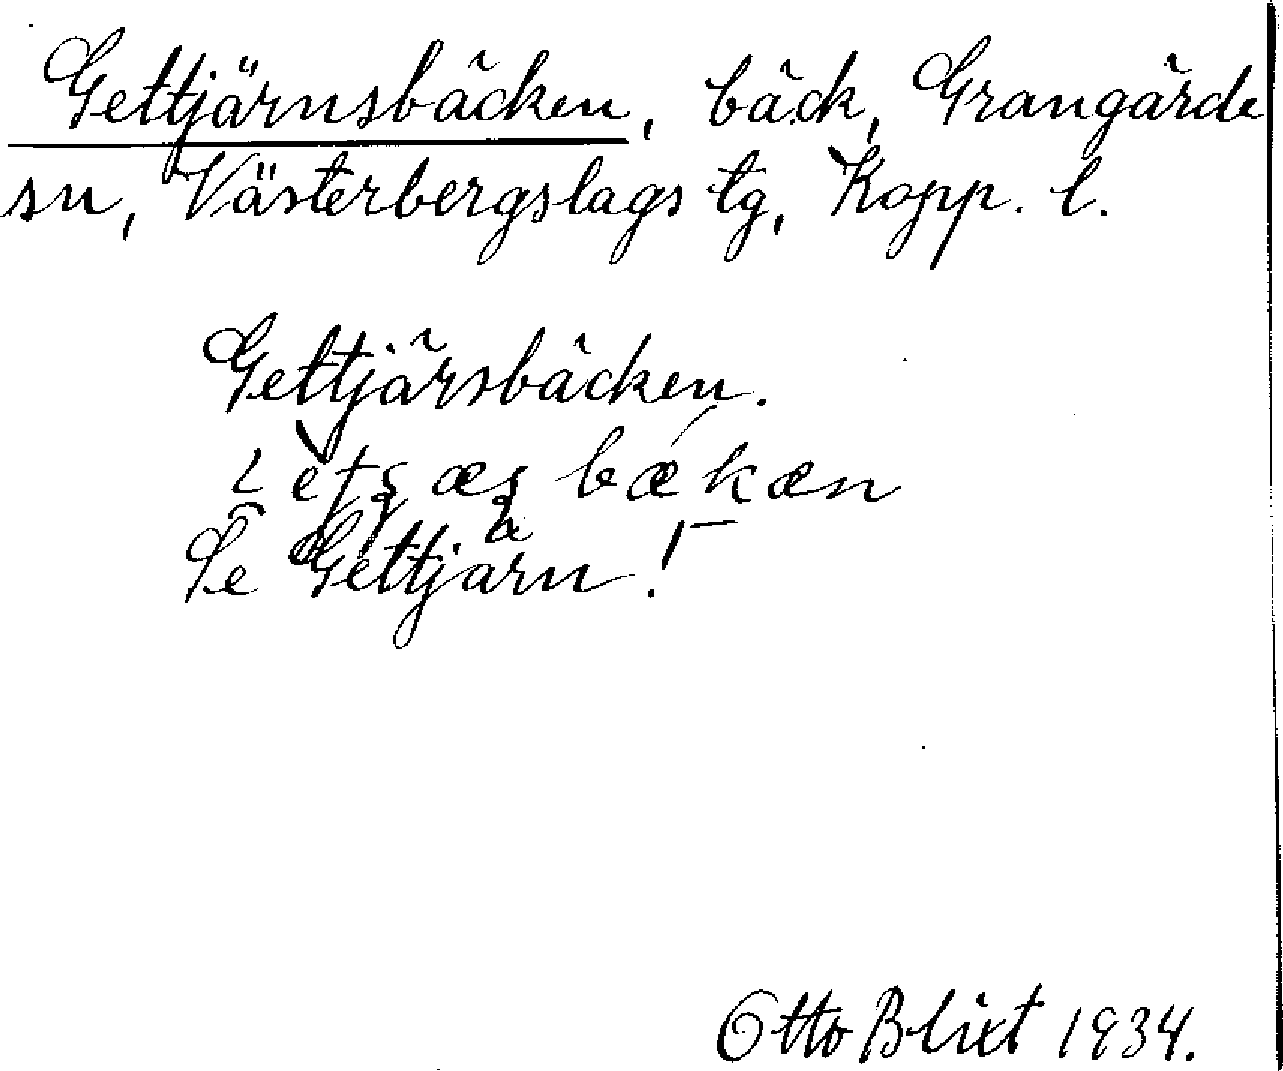 Gettjärnsbäcken, bäck, Grangärde
sn, Västerbergslags tg, Kopp. l.
Gettjärsbäcken.
Se Gettjärn!
Otto Blixt 1934.